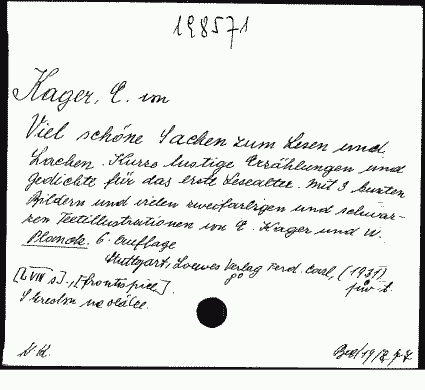 198571
Kager, E. von
Viel schöne Sachen zum Lesen und
Lachen. Kurze lustige Erzählungen und
Gedichte für das erste Lesealter. Mit 3 bunten
Bildern und vielen zweifarbigen und schwar-
zen Textillustrationen von E. Kager und W.
Planck. 6. Auflage
Stuttgart, Loewes Verlag Ferd. Carl, (1931)
[LVIII s]., [frontispiel].
S kresbu na obálce.